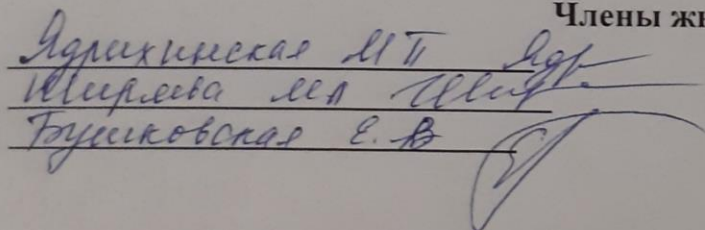 Члены жю
Ядрихинская М П Ядр
Ширяева М А
Бушковская Е. В